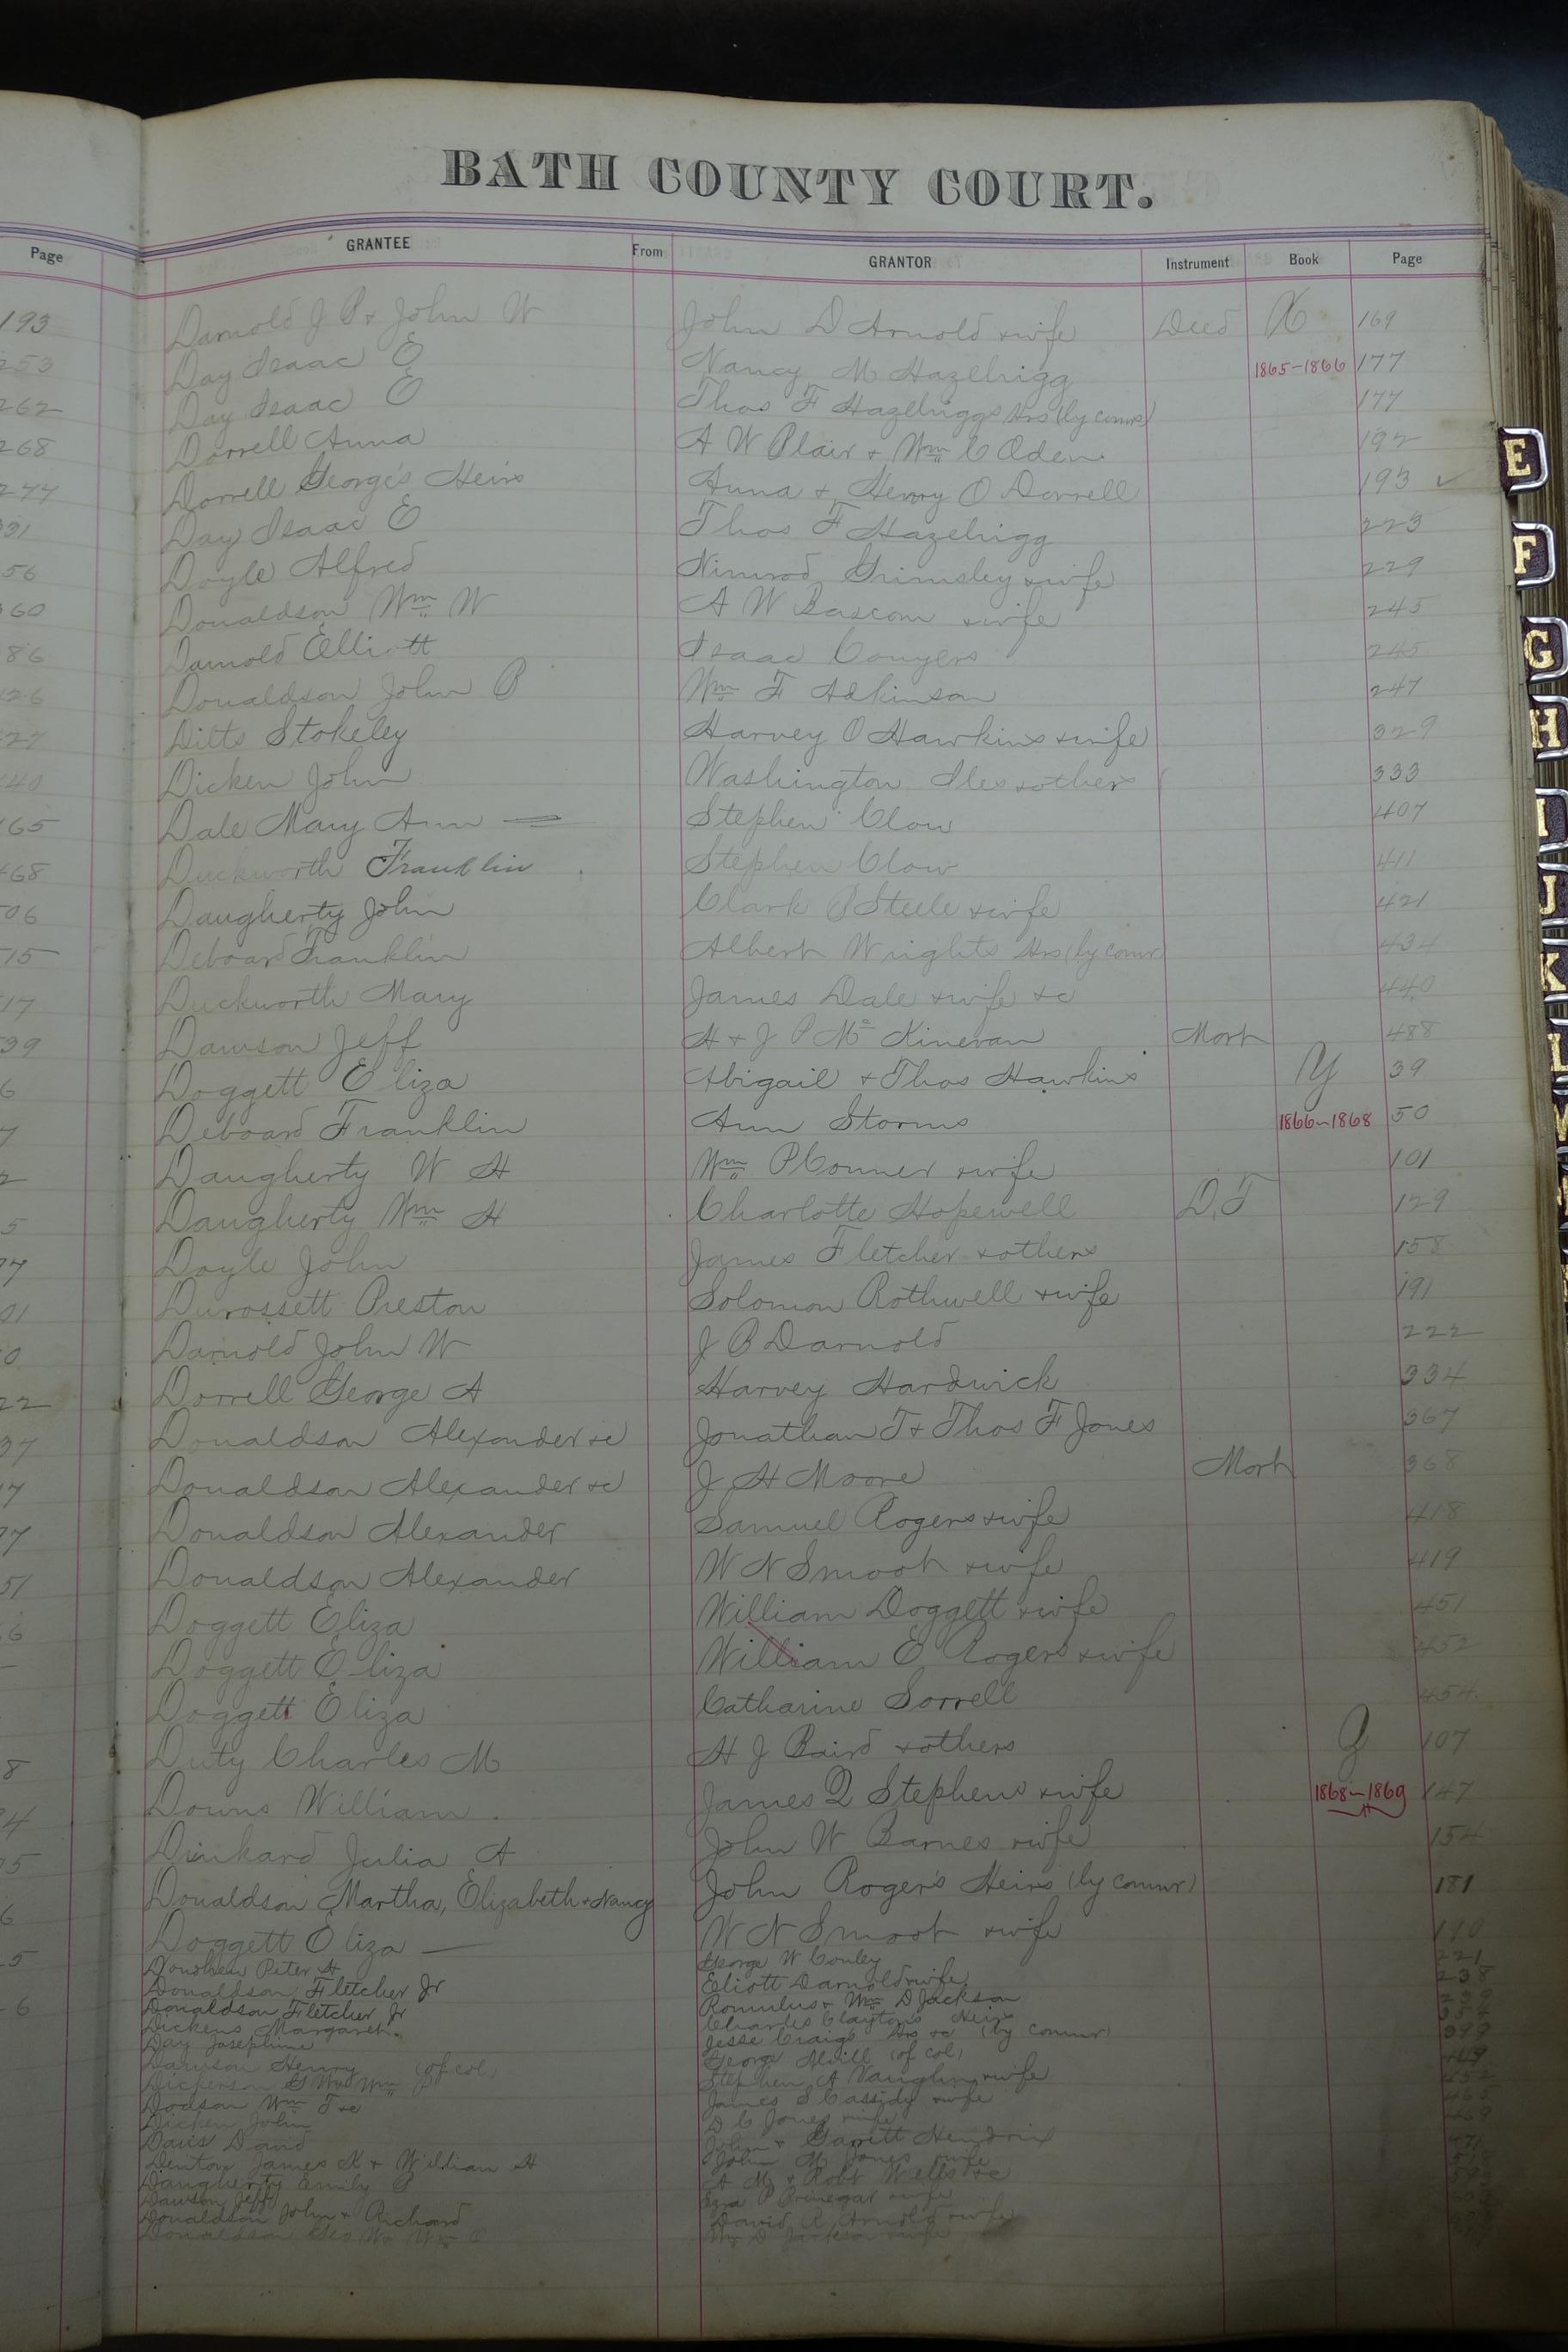 BATH COUNTY COURT.
Page GRANTEE From GRANTOR Instrument Book Page
193 Darnold J P + John W John D Arnold + wife Deed X 169
253 Day Isaac E Nancy M Hazelrigg 1865-1866 177
262 Day Isaac E Thos F Hazelriggs Hrs (by comr) 177
268 Dorrell Anna A W Blair + Wm C Oden 192
Dorrell George's Heirs Anna + Henry O Dorrell 193 ✓
Day Isaac E Thos F Hazelrigg 223
56 Doyle Alfred Nimrod Grimsley + wife 229
60 Donaldson Wm W A W Bascom + wife 245
86 Darnold Elliott Isaac Conyers 245
26 Donaldson John P Wm F Adkinson 247
27 Ditts Stokeley Harvey O Hawkins + wife 329
40 Dicken John Washington Iles + others 333
65 Dale Mary Ann Stephen Clow 407
68 Duckworth Franklin Stephen Clow 411
06 Daugherty John Clark P Steele + wife 421
15 Deboard Franklin Albert Wrights Hrs (by comr) 434
17 Duckworth Mary James Dale + wife +c 440
39 Dawson Jeff H + J P Mc Kinevan Mort 488
6 Doggett Eliza Abigail + Thos Hawkins Y 39
7 Deboard Franklin Ann Storms 1866-1868 50
2 Daugherty W H Wm P Conner + wife 101
5 Daugherty Wm H Charlotte Hopewell D.T 129
Doyle John James Fletcher + others 158
01 Durossett Preston Solomon Rothwell + wife 191
0 Darnold John W J P Darnold 222
22 Dorrell George A Harvey Hardwick 334
37 Donaldson Alexander +c Jonathan T + Thos F Jones 367
Donaldson Alexander +c J H Moore Mort 368
Donaldson Alexander Samuel Rogers + wife 418
51 Donaldson Alexander W N Smoot + wife 419
6 Doggett Eliza William Doggett + wife 451
Doggett Eliza William E Rogers + wife 452
Doggett Eliza Catharine Sorrell 454
8 Duty Charles M H J Baird + others 107
4 Downs William James Q Stephens + wife 1868-1869 147
5 Drinkard Julia A John W Barnes + wife 154
6 Donaldson Martha, Elizabeth + Nancy John Roger's Heirs (by comr) 181
5 Doggett Eliza W N Smoot + wife 190
Peter H George W Conley 221
Donaldson Fletcher Jr Eliott Darnold + wife 238
6 Donaldson Fletcher Jr Romulus + Wm D Jackson
Dickens Margaret Charles Claytons Heirs
Day Josephine Jesse Craigs Hrs +c (by comr)
Dawson Henry (of col) George (of col)
Dickerson Stephen A Vaughn + wife
Dodson Wm T +c James S Cassidy + wife
Dicken John D C Jones + wife
Davis David John + Garrett Hendrix
Denton James K + William H John M Jones + wife
Daugherty Emily A M + Robt Wells +c
Dawson Jeff Ezra P + wife
Donaldson John + Richard David R Arnold + wife
Donaldson Geo W + Wm Wm D Jackson + wife
E
F
G
H
I
J
K
L